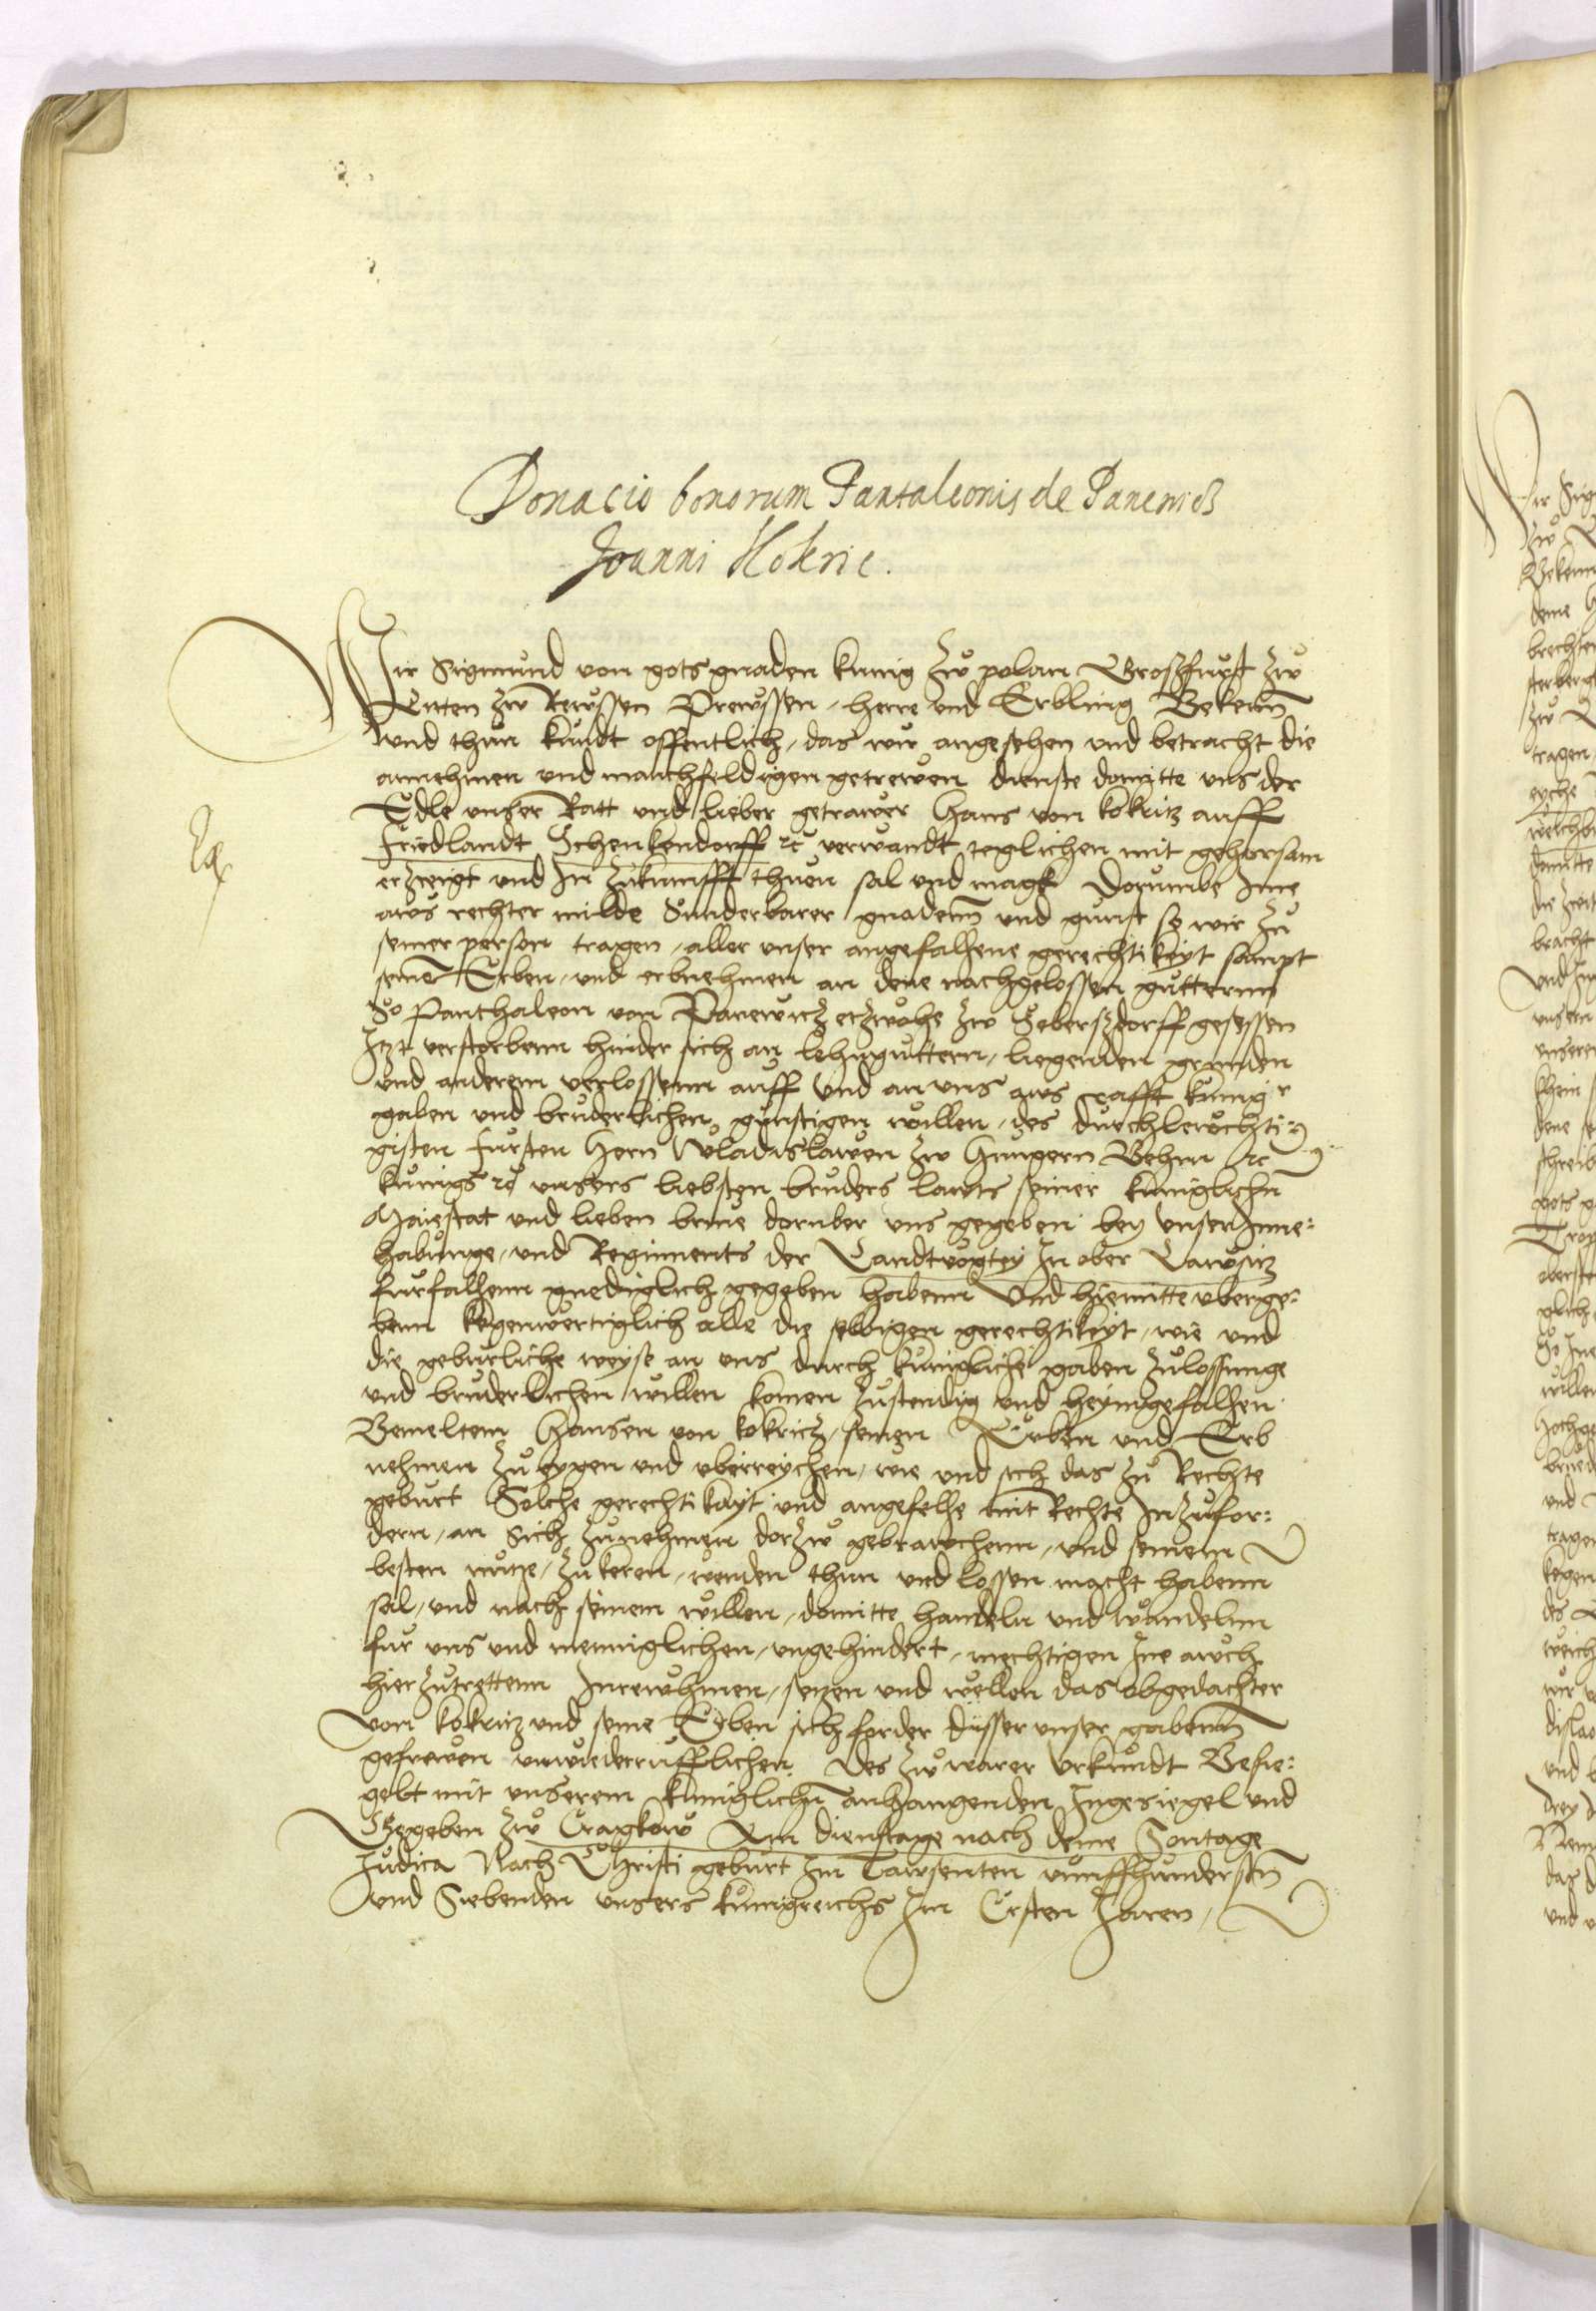 Donacio bonorum Pantaleonis de Panewicz
Joanni Kokric.
Wir Sigmund von gots gnaden kunig zw polan Groszfurst zw
Litten zw Rewssen Prewssen, herre und Erbling Bekenn
und thun kundt offentlich, das wir angesehen und betracht die
annehmen und manchfeldigen getrewen dienste domitte uns der
Edle unser Ratt und lieber getrawer Hans von kokritz auff
Friedlandt Schenkendorff etc verwandt teglichen mit gehorsam
erzceigt und In zukunfft thuen sal und magk Dorumbe Ime
aws rechter milde Sunderbarer gnadenn und gunst so wir zu
seiner person tragen, aller unser angefalhene gerechtikeyt sampt
seine Erben, und erbnehmen an dene nachgelossen gutternn
So Panthaleon von Panewicz etzwohe zw Seberszdorff gesessen
Itzt verstorbenn hinder sich an lehnguttern, liegenden grunden
und anderem verlossenn auff und an uns aws crafft kunigr
gaben und bruderlichen gunstigen willen, des durchlewchti:
gisten fursten Hern Wladislawen zw Hungern Behm etc
kunigs etc unsers liebsten bruders lawts seiner kuniglichn
Maiestat und lieben brive doruber uns gegeben bey unser Inne:
habunge, und Regiments der Landtvogtey In ober Lawsitz
furfalhenn gnediglich gegeben habenn Und hiemitte uberge:
benn kegenwertiglich alle die selbigen gerechtikeyt, wie und
die geburliche weyse an uns durch kunigliche gaben zulossunge
und bruderlichen willen komen zustendig und heymgefalhen
Gemeltem Hansen von kokricz, seinen Erben und Erb
nehmen zu eygen und uberreychen, wie und sich das zu Rechte
geburt Solche gerechtikayt und angefelhe mit Rechte Inzufor:
dern, an sich zunehmen dorzw gebrawchenn, und seinem
besten nutze, zukeren, wenden thun und lossen macht habenn
sal, und nach seinem willen, domitte handeln und wandelnn
fur uns und menniglichen, ungehindert, mechtigen Ine auch
hierzutrettenn Inrewhmen, setzen und wellen das obgedachter
von kokritz und seine Erben sich forder disser unser gabenn
gefrewen unwiederrufflichen. Des zw warer Urkundt Besie:
gelt mit unserem kuniglichn anhangenden Ingesiegel und
Gegeben zw Cragkow Am dienstage nach deme Sontage
Judica Nach Christi geburt Im Tawsenten vunffhunderstn
und Siebenden unsers kunigreichs Im Ersten Jaren,